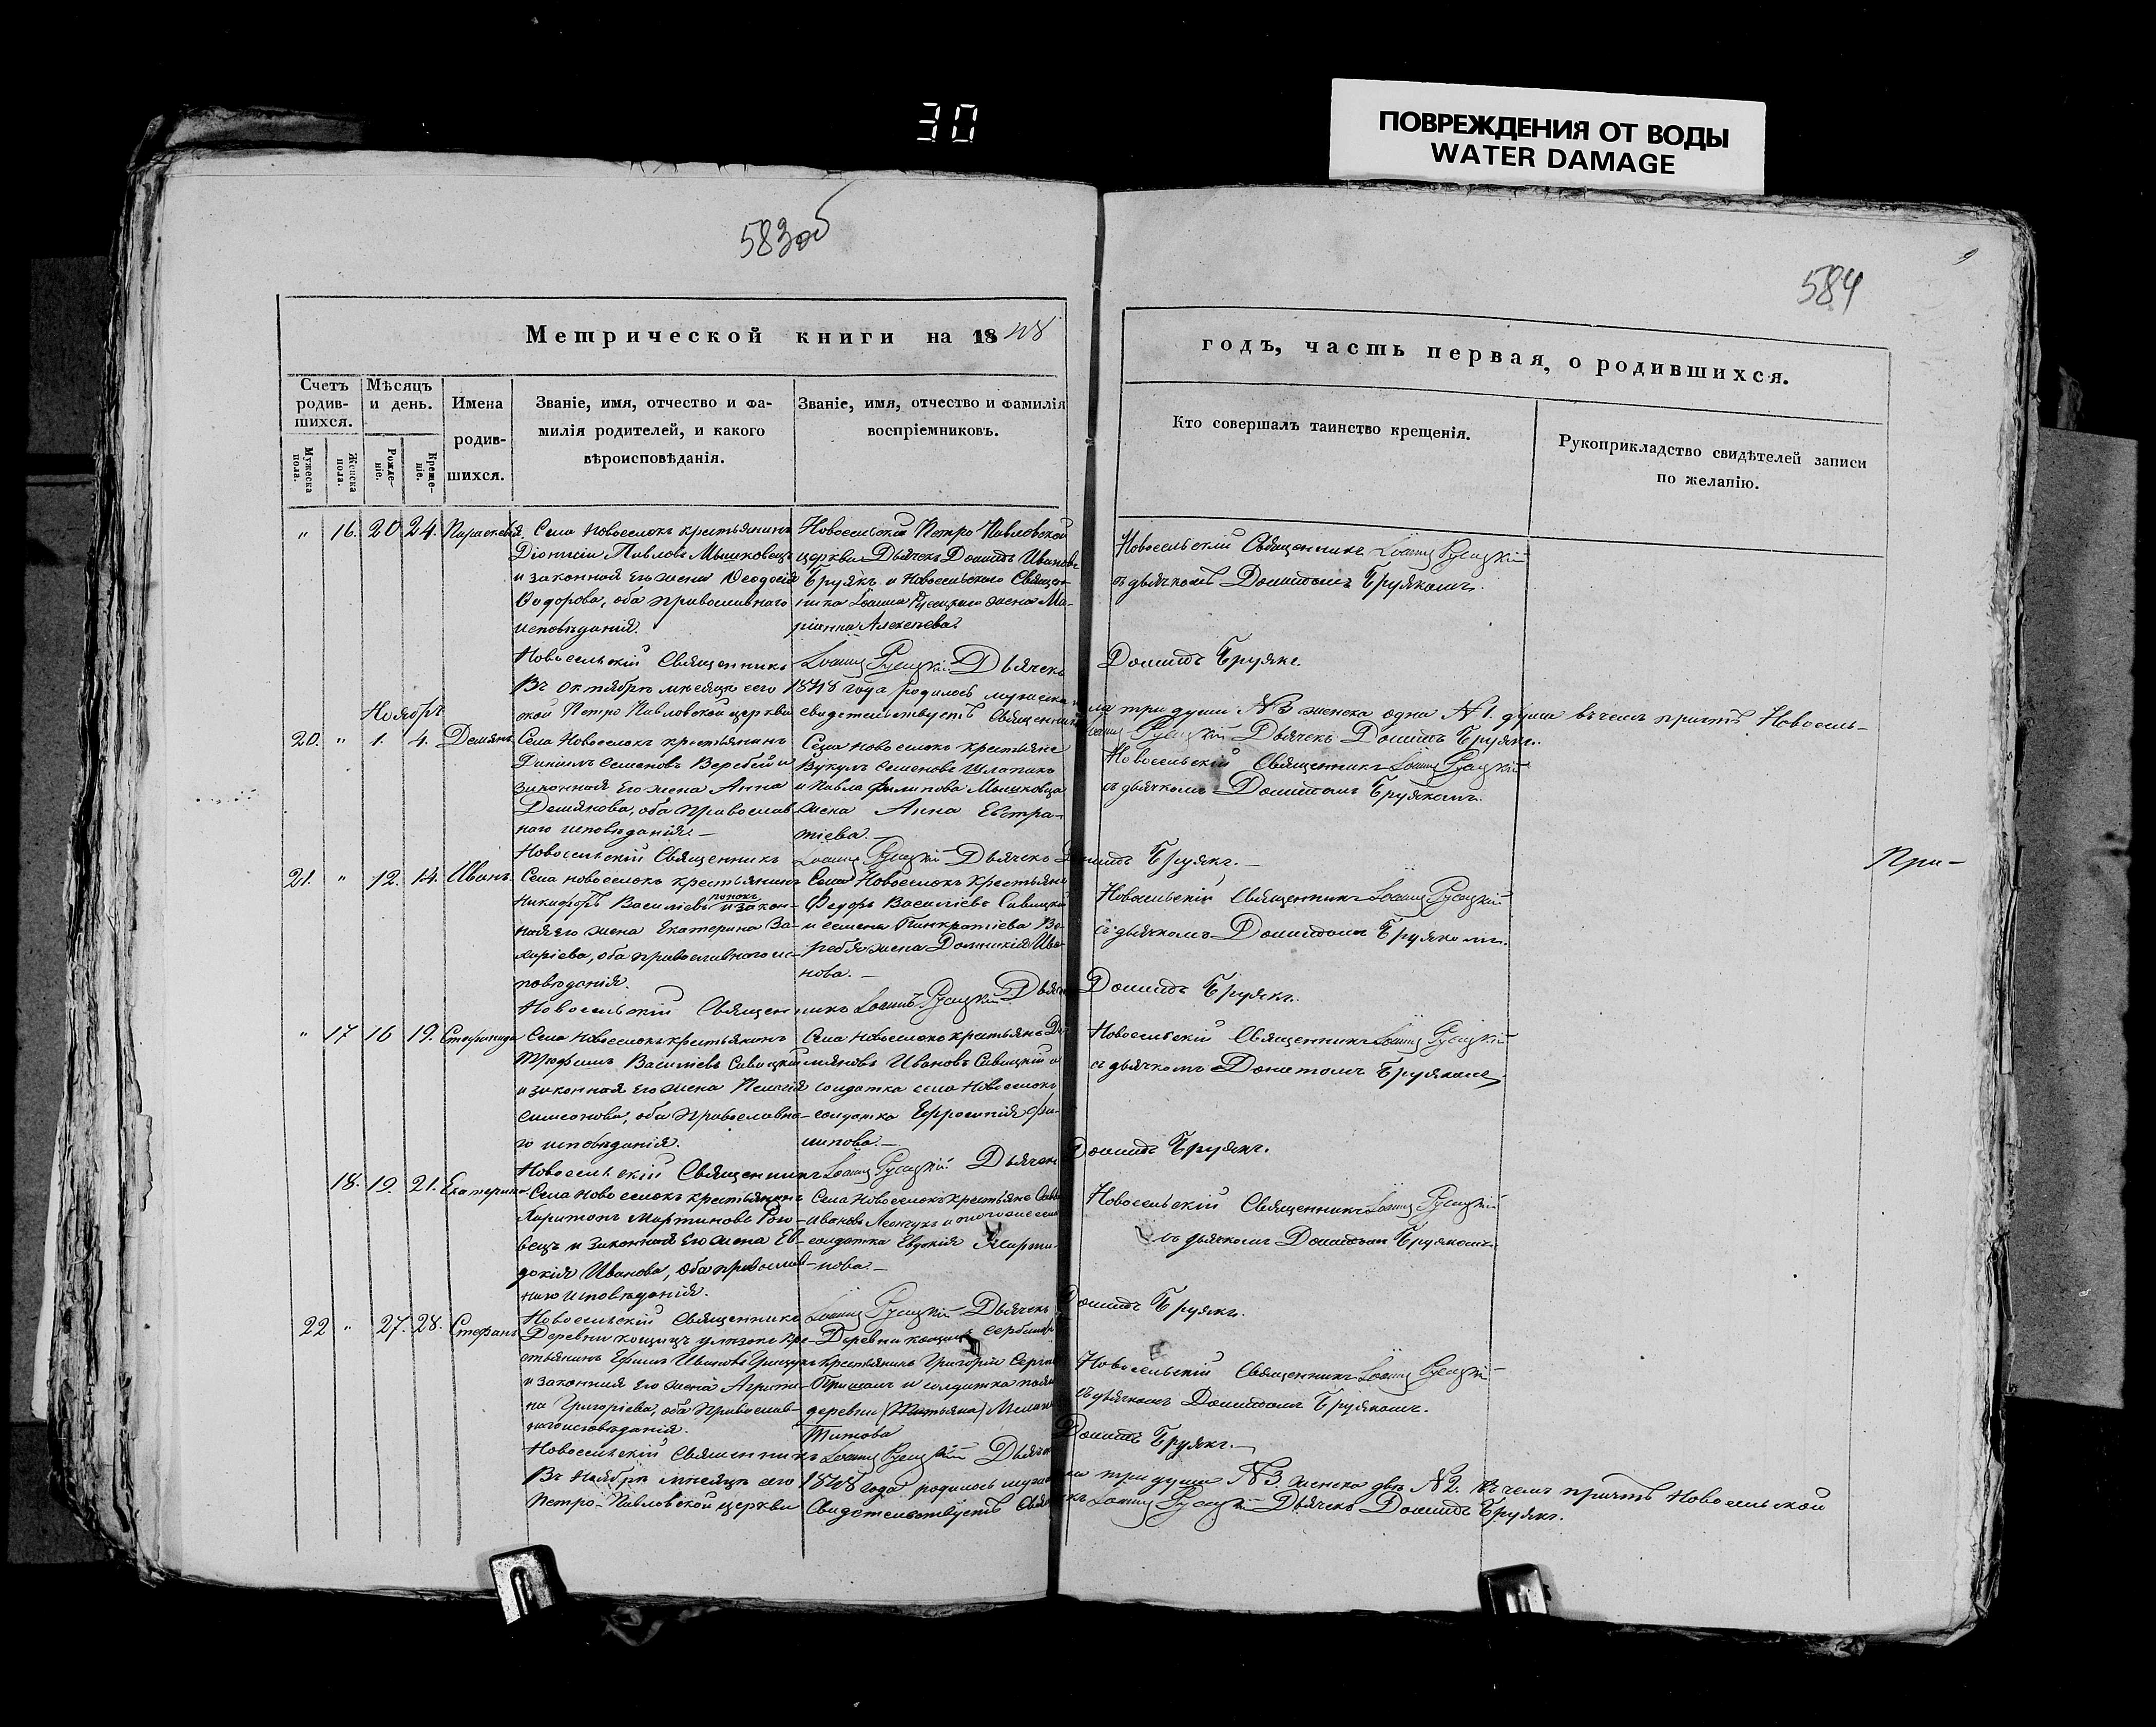 30
ПОВРЕЖДЕНИЯ ОТ ВОДЫ
WATER DAMAGE
583об
584
Метрической книги на 1848
годъ, часть первая, о родившихся.
Счетъ родив-
шихся.
Мѣсяцъ
и день.
Имена
родив-
шихся.
Званіе, имя, отчество и фа-
милія родителей, и какого
вѣроисповѣданія.
Званіе, имя, отчество и фамилія
воспріемниковъ.
Кто совершалъ таинство крещенія.
Рукоприкладство свидѣтелей записи
по желанію.
Мужеска
пола.
Женска
пола.
Рожде-
ніе.
Креще-
ніе.
" 16. 20 24. Параскевія.
Села Новоселокъ крестьянинъ
Діонисій Павловъ Мышковецъ
и законная его жена Ѳеодосія
Ѳодорова, оба православнаго
исповѣданія.
Новосельской Петро Павловской
церкви Дьячекъ Домидъ Ивановъ
Брузкъ и Новосельского Священ-
ника Іоанна Русецкаго жена Ма-
ріанна Алексѣева.
Новосельскій Священникъ Іоаннъ Русецкій
съ дьячкомъ Домидомъ Брузкомъ.
Новосельскій Священникъ Іоаннъ Русецкій Дьячекъ Домидъ Брузкъ.
Въ октябрѣ мѣсяцѣ сего 1848 года родилось мужеска пола три души №3 женска одна №1. душа въ чемъ причтъ Новосель-
ской Петро Павловской церкви свидетельствуетъ Священникъ Іоаннъ Русецкій Дьячекъ Домидъ Брузкъ.
Ноябрь
20. " 1. 4. Демянъ
Села Новоселокъ крестьянинъ
Даніилъ Семеновъ Веребей и
законная его жена Анна
Демянова, оба православ-
наго исповѣданія.
Села Новоселокъ крестьяне
Вукулъ Семеновъ
и Павла Филипова Мышковца
жена Анна Евстра-
тіева.
Новосельскій Священникъ Іоаннъ Русецкій
съ дьячкомъ Домидомъ Брузкомъ.
Новосельскій Священникъ Іоаннъ Русецкій Дьячекъ Домидъ Брузкъ.
При-
21. " 12. 14. Иванъ
Села Новоселокъ крестьянинъ
Никифоръ Василіевъ и закон-
ная его жена Екатерина За-
харіева, оба православнаго ис-
повѣданія.
Села Новоселокъ крестьяне
Федоръ Василіевъ Савицкій
и семена Панкратіева Ве-
ребя жена Домникія Ива-
нова.
Новосельскій Священникъ Іоаннъ Русецкій
съ дьячкомъ Домидомъ Брузкомъ.
Новосельскій Священникъ Іоаннъ Русецкій Дьячекъ Домидъ Брузкъ.
" 17 16 19. Стефанида
Села Новоселокъ крестьянинъ
Трофимъ Василіевъ Савицкій
и законная его жена Пелагія
Симеонова, оба православна-
го исповѣданія.
Села Новоселокъ крестьяне Де-
мяновъ Ивановъ Савицкій и
солдатка села Новоселокъ
солдатка Ефросинія Фи-
липова.
Новосельскій Священникъ Іоаннъ Русецкій
съ дьячкомъ Домидомъ Брузкомъ.
Новосельскій Священникъ Іоаннъ Русецкій Дьячекъ Домидъ Брузкъ.
18. 19. 21. Екатерина
Села Новоселокъ крестьянинъ
Харитонъ Мартиновъ Рого-
вецъ и законная его жена Ев-
докія Иванова, оба православ-
наго исповѣданія.
Села Новоселокъ крестьяне Савва
Ивановъ Леончукъ и тогоже села
солдатка Евдокія Марти-
нова.
Новосельскій Священникъ Іоаннъ Русецкій
съ дьячкомъ Домидомъ Брузкомъ.
Новосельскій Священникъ Іоаннъ Русецкій Дьячекъ Домидъ Брузкъ.
22 " 27. 28. Стефанъ
Деревни кре-
стьянинъ Ефимъ Ивановъ Грицукъ
и законная его жена Агрипи-
на Григоріева, оба православ-
наго исповѣданія.
Деревни
крестьянинъ Григорій
и солдатка
деревни
Титова
Новосельскій Священникъ Іоаннъ Русецкій
съ дьячкомъ Домидомъ Брузкомъ.
Новосельскій Священникъ Іоаннъ Русецкій Дьячекъ Домидъ Брузкъ.
Въ Ноябрѣ мѣсяцѣ сего 1848 года родилось мужеска три души №3 женска двѣ №2. въ чемъ причтъ Новосельской
Петро-Павловской церкви Свидетельствуетъ Священникъ Іоаннъ Русецкій Дьячекъ Домидъ Брузкъ.